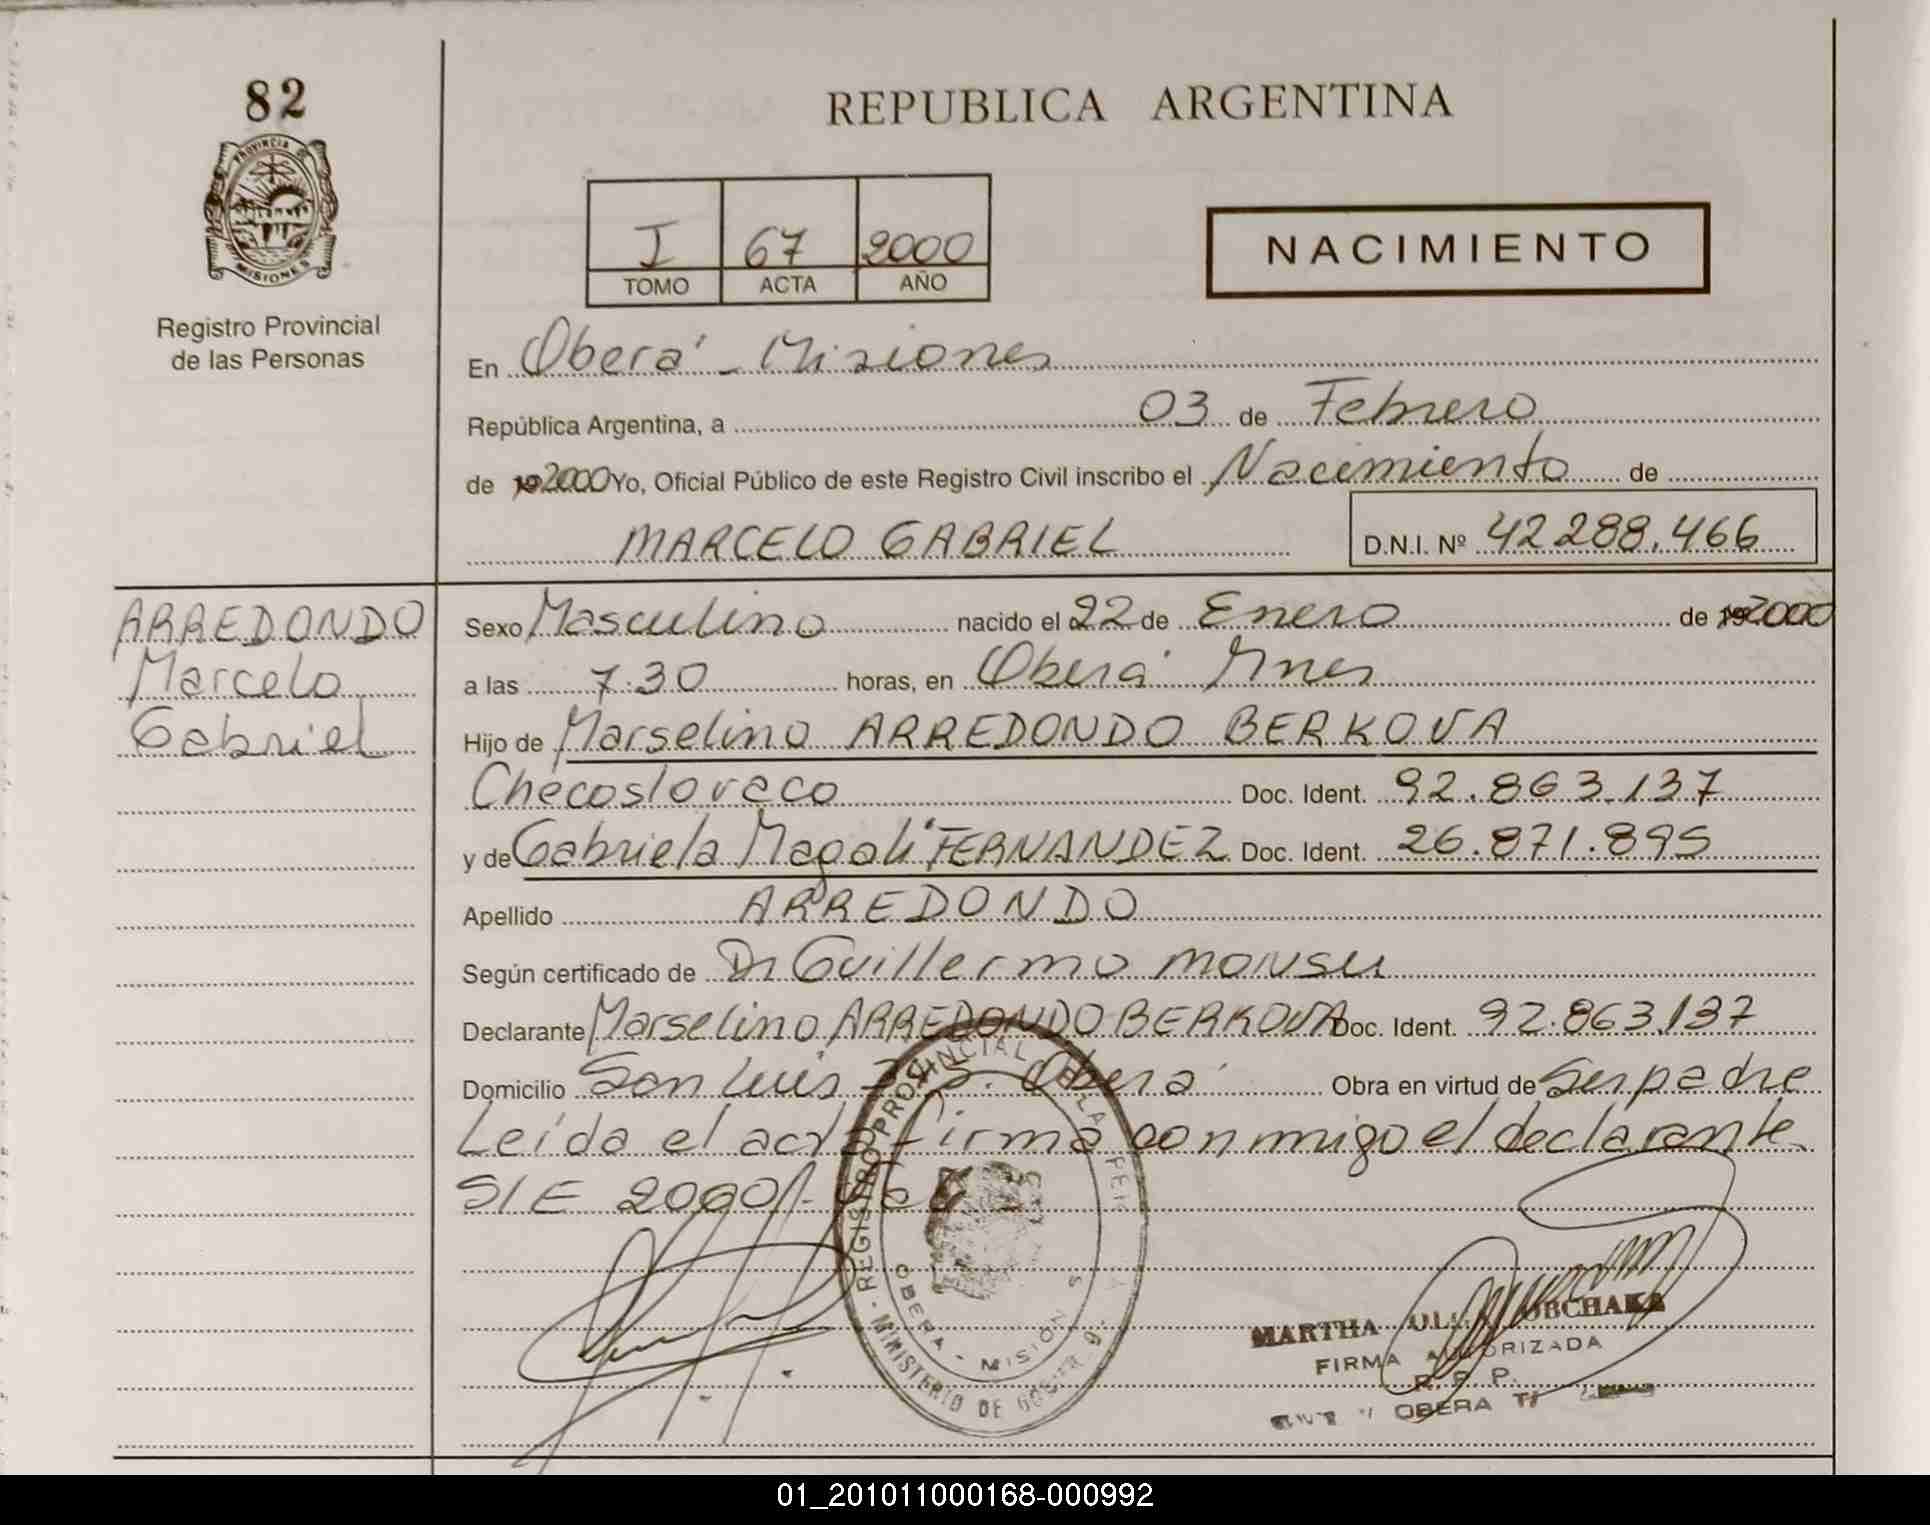 82
REPUBLICA ARGENTINA
PROVINCIA D
MISIONES
Registro Provincial
de las Personas
I 67 2000
TOMO ACTA AÑO
NACIMIENTO
En Oberá - Misiones
República Argentina, a 03 de Febrero
de 2000 Yo, Oficial Público de este Registro Civil inscribo el Nacimiento de
MARCELO GABRIEL D.N.I. Nº 42 288.466
ARREDONDO
Marcelo
Gabriel
Sexo Masculino nacido el 22 de Enero de 2000
a las 7:30 horas, en Oberá Mnes
Hijo de Marselino ARREDONDO BERKOVA
Checoslovaco Doc. Ident. 92.863.137
y de Gabriela Magali FERNANDEZ Doc. Ident. 26.871.895
Apellido ARREDONDO
Según certificado de Dr Guillermo MONSU
Declarante Marselino ARREDONDO BERKOVA Doc. Ident. 92.863.137
Domicilio San Luis Oberá Obra en virtud de Ser padre
Leída el acta firma conmigo el declarante
S/E 2000
REGISTRO PROVINCIAL DE LA PER
OBERA - MISION S
MINISTERIO DE
MARTHA
FIRMA AUTORIZADA
R. P. P.
OBERA
01_201011000168-000992